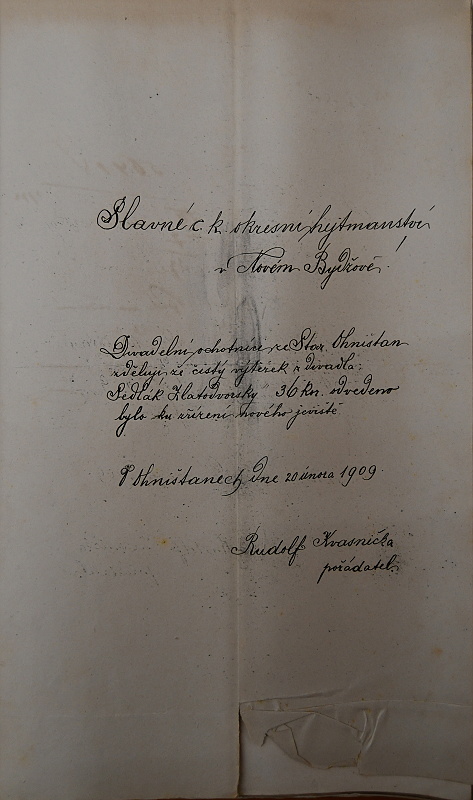 Slavné c. k. okresní hejtmanství
v Novém Bydžově!
Divadelní ochotníci ze Star. Ohništan
sdělují, že čistý výtěžek z divadla:
Sedlák Zlatodvorský" 36 kr. odvedeno
bylo ku zřízení nového jeviště.
V Ohništanech, dne 20 února 1909.
Rudolf Kvasnička
pořádatel.